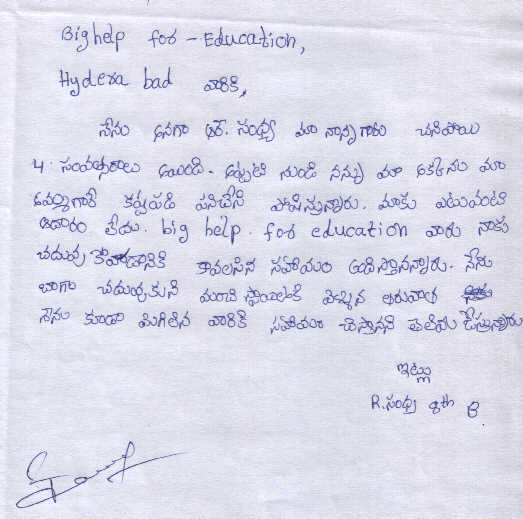 Bighelp for - Education,
Hydera bad వారికి,
నేను అనగా ఆర్. సంధ్య మా నాన్నగారు చనిపోయి
4. సంవత్సరాలు అయింది. అప్పటి నుండి నన్ను మా అక్కను మా
అమ్మగారే కష్టపడి పనిచేసి పోషిస్తున్నారు. మాకు ఎటువంటి
ఆదారం లేదు. big help. for education వారు నాకు
చదువు కోవడానికి కావలసిన సహాయం అందిస్తానన్నారు. నేను
బాగా చదువుకుని మంచి స్థాయికి వచ్చిన తరువాత
నేను కూడా మిగిలిన వారికి సహాయం చేస్తానని తెలియ చేస్తున్నాను
ఇట్లు
R. సంధ్య 8th B